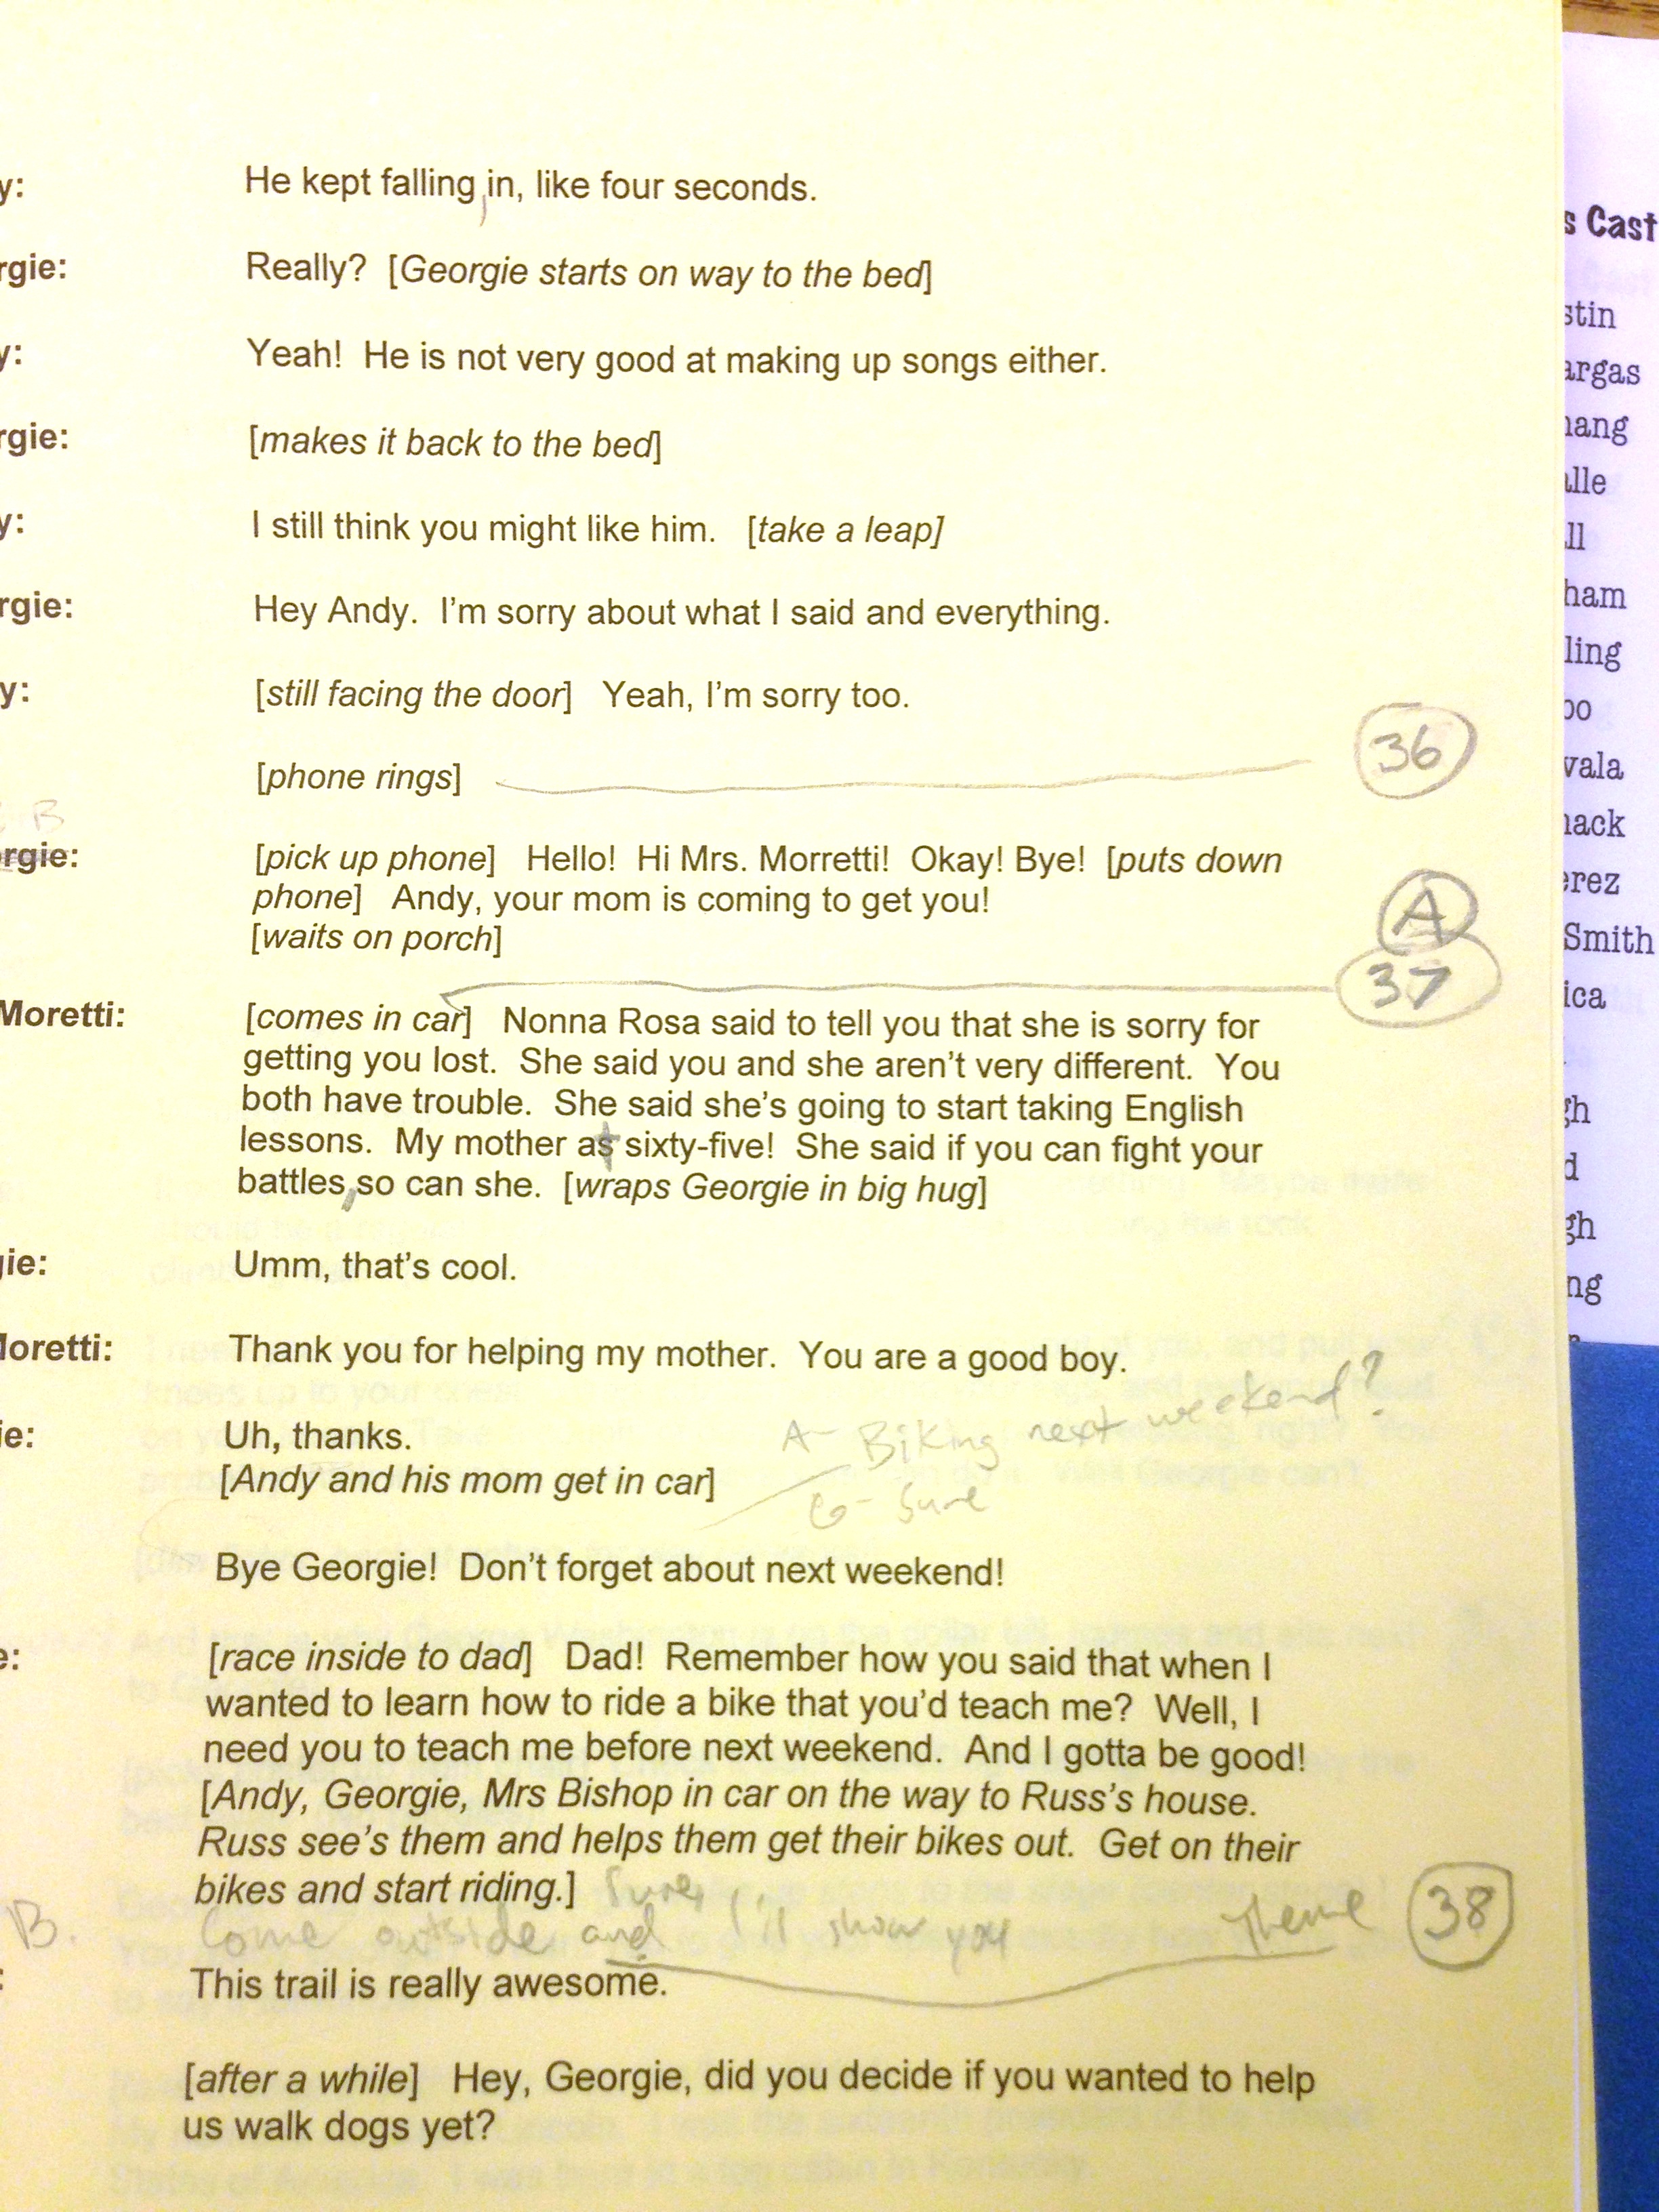 y: He kept falling in, like four seconds.
rgie: Really? [Georgie starts on way to the bed]
y: Yeah! He is not very good at making up songs either.
rgie: [makes it back to the bed]
y: I still think you might like him. [take a leap]
rgie: Hey Andy. I'm sorry about what I said and everything.
y: [still facing the door] Yeah, I'm sorry too.
36
[phone rings]
B
rgie: [pick up phone] Hello! Hi Mrs. Morretti! Okay! Bye! [puts down
phone] Andy, your mom is coming to get you!
[waits on porch]
A
37
Moretti: [comes in car] Nonna Rosa said to tell you that she is sorry for
getting you lost. She said you and she aren't very different. You
both have trouble. She said she's going to start taking English
lessons. My mother as sixty-five! She said if you can fight your
battles, so can she. [wraps Georgie in big hug]
gie: Umm, that's cool.
Moretti: Thank you for helping my mother. You are a good boy.
A- Biking next weekend?
ie: Uh, thanks.
[Andy and his mom get in car]
G- Sure
Bye Georgie! Don't forget about next weekend!
e: [race inside to dad] Dad! Remember how you said that when I
wanted to learn how to ride a bike that you'd teach me? Well, I
need you to teach me before next weekend. And I gotta be good!
[Andy, Georgie, Mrs Bishop in car on the way to Russ's house.
Russ see's them and helps them get their bikes out. Get on their
bikes and start riding.] Sure,
B. Come outside and I'll show you Theme 38
: This trail is really awesome.
[after a while] Hey, Georgie, did you decide if you wanted to help
us walk dogs yet?
s Cast
stin
argas
hang
alle
ll
ham
ling
oo
vala
mack
erez
Smith
ica
gh
d
gh
ng